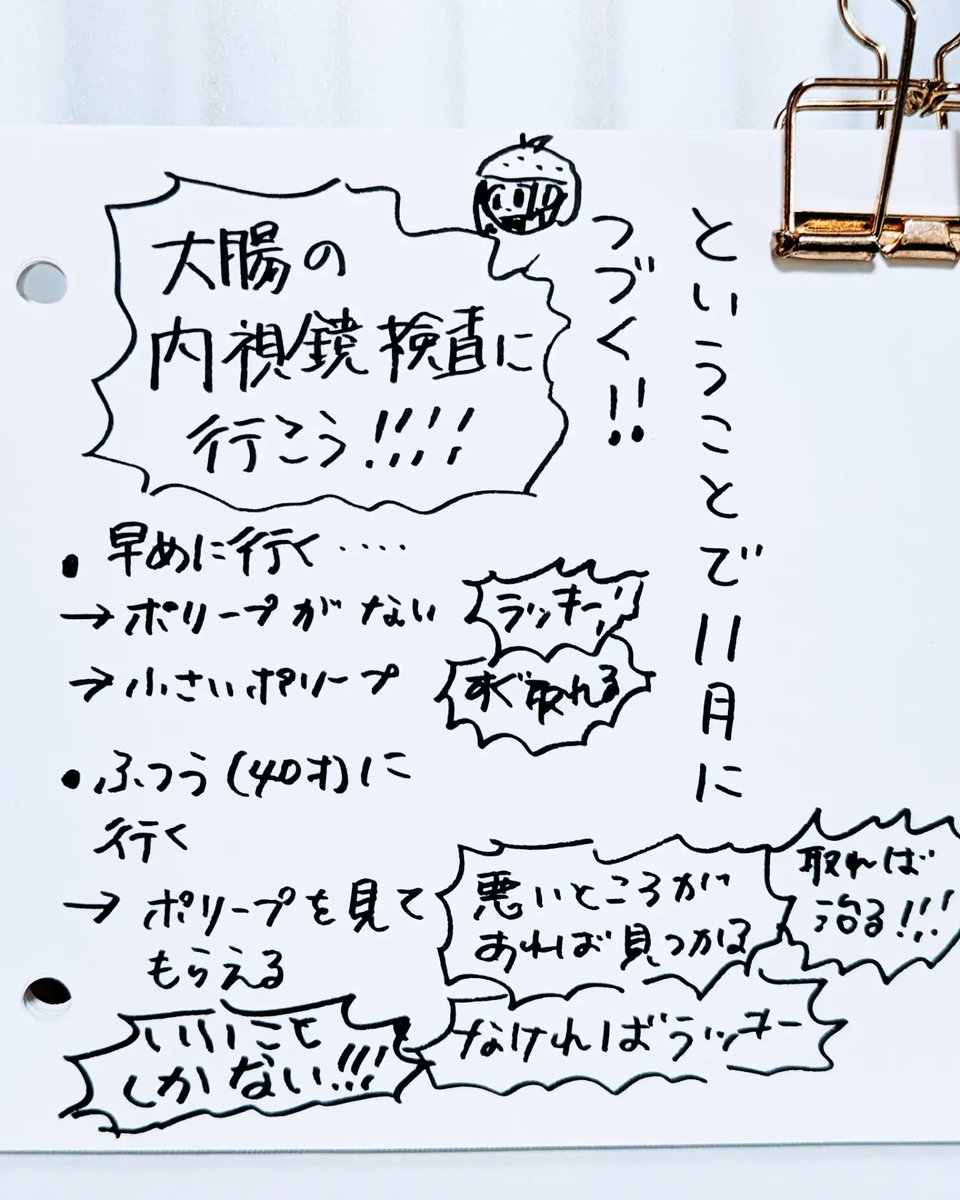 ということで11月に
つづく!!
大腸の
内視鏡検査に
行こう!!!!
・早めに行く‥‥
→ポリープがない
ラッキー!!
→小さいポリープ
すぐ取れる
・ふつう(40才)に
行く
→ポリープを見て
もらえる
悪いところが
あれば見つかる
取れば
治る!!!
なければラッキー
いいこと
しかない!!!